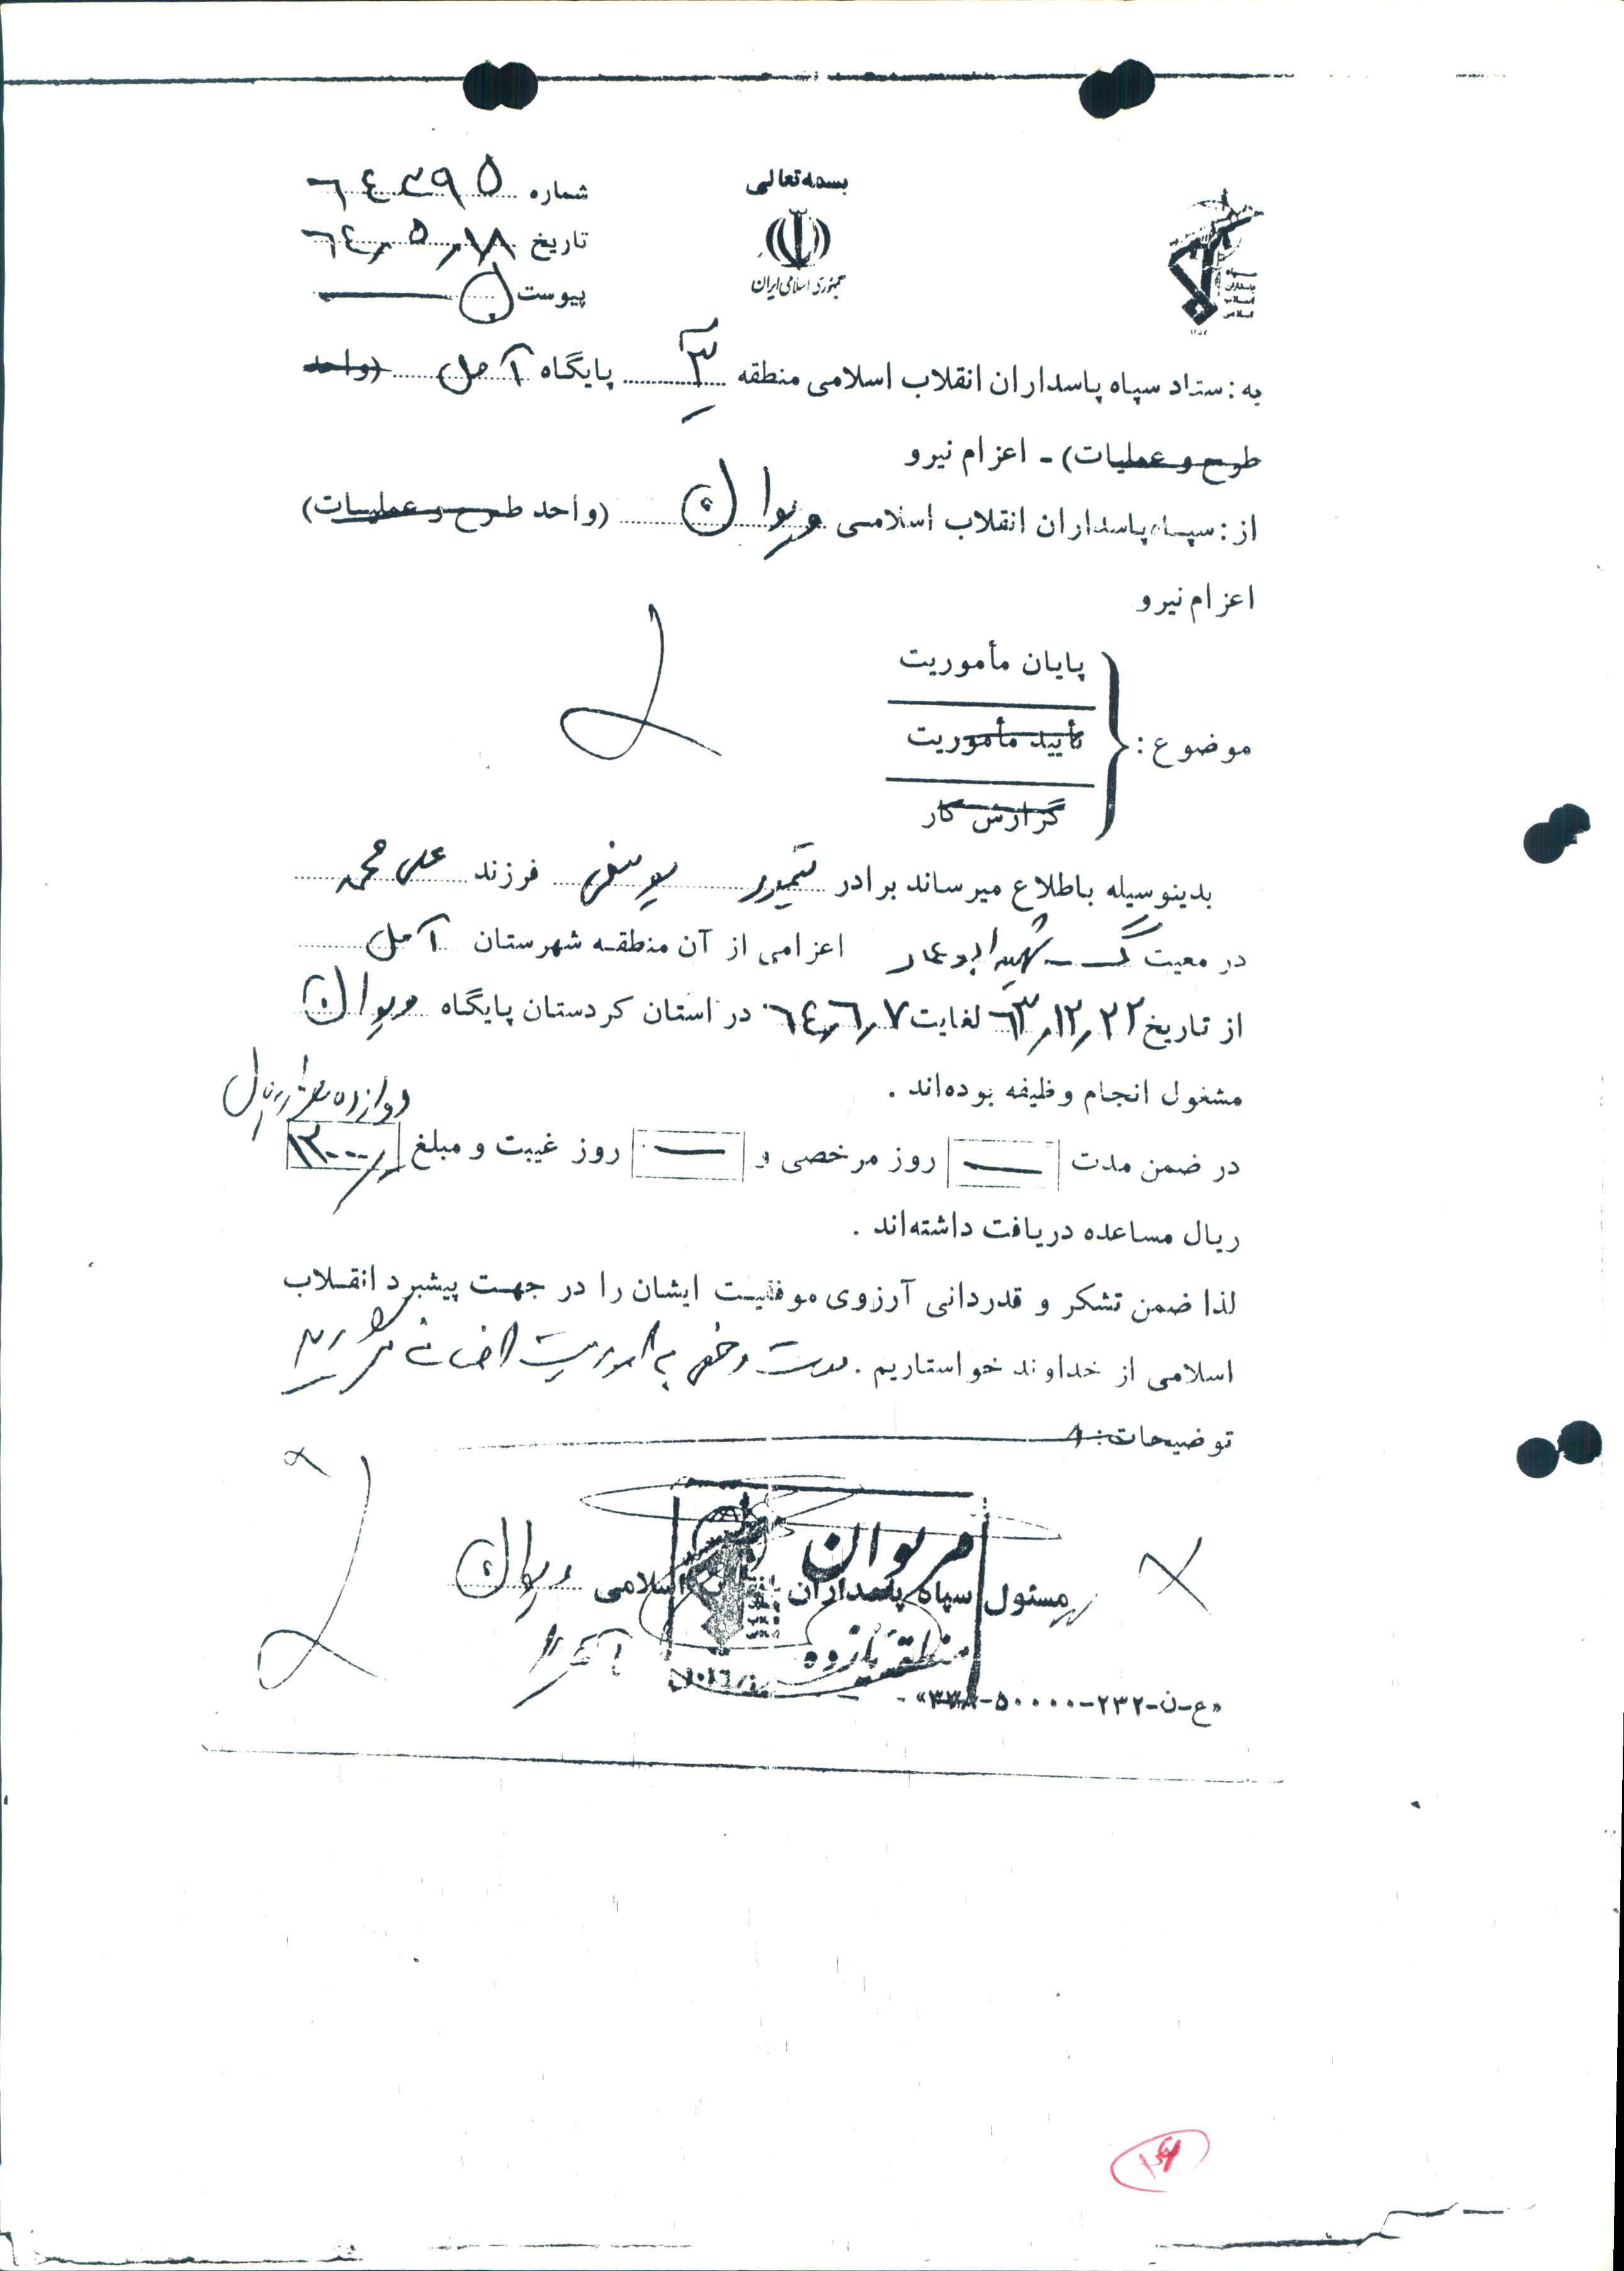 بسمه تعالی
جمهوری اسلامی ایران
سپاه پاسداران انقلاب اسلامی
شماره ٦٤٣٩٥
تاریخ ٦٤٫٥٫١٨
پیوست
به: ستاد سپاه پاسداران انقلاب اسلامی منطقه ٣ پایگاه آمل (واحد
طرح و عملیات) - اعزام نیرو
از: سپاه پاسداران انقلاب اسلامی مریوان (واحد طرح و عملیات)
اعزام نیرو
پایان مأموریت
موضوع: تأیید مأموریت
گزارش کار
بدینوسیله باطلاع میرساند برادر تیمور یوسفی فرزند علی محمد
در معیت گ - شهید ابوعمار اعزامی از آن منطقه شهرستان آمل
از تاریخ ٦٣٫١٢٫٢٢ لغایت ٦٤٫٦٫٧ در استان کردستان پایگاه مریوان
مشغول انجام وظیفه بوده‌اند .
دوازده هزار ریال
در ضمن مدت — روز مرخصی و — روز غیبت و مبلغ ١٢٠٠٠
ریال مساعده دریافت داشته‌اند .
لذا ضمن تشکر و قدردانی آرزوی موفقیت ایشان را در جهت پیشبرد انقلاب
اسلامی از خداوند خواستاریم . مدت مرخصی به ماموریت اضافه
توضیحات:
مسئول سپاه پاسداران انقلاب اسلامی مریوان
مریوان
منطقه یازده
«ع-ن-۲۳۲-۵۰۰۰۰-